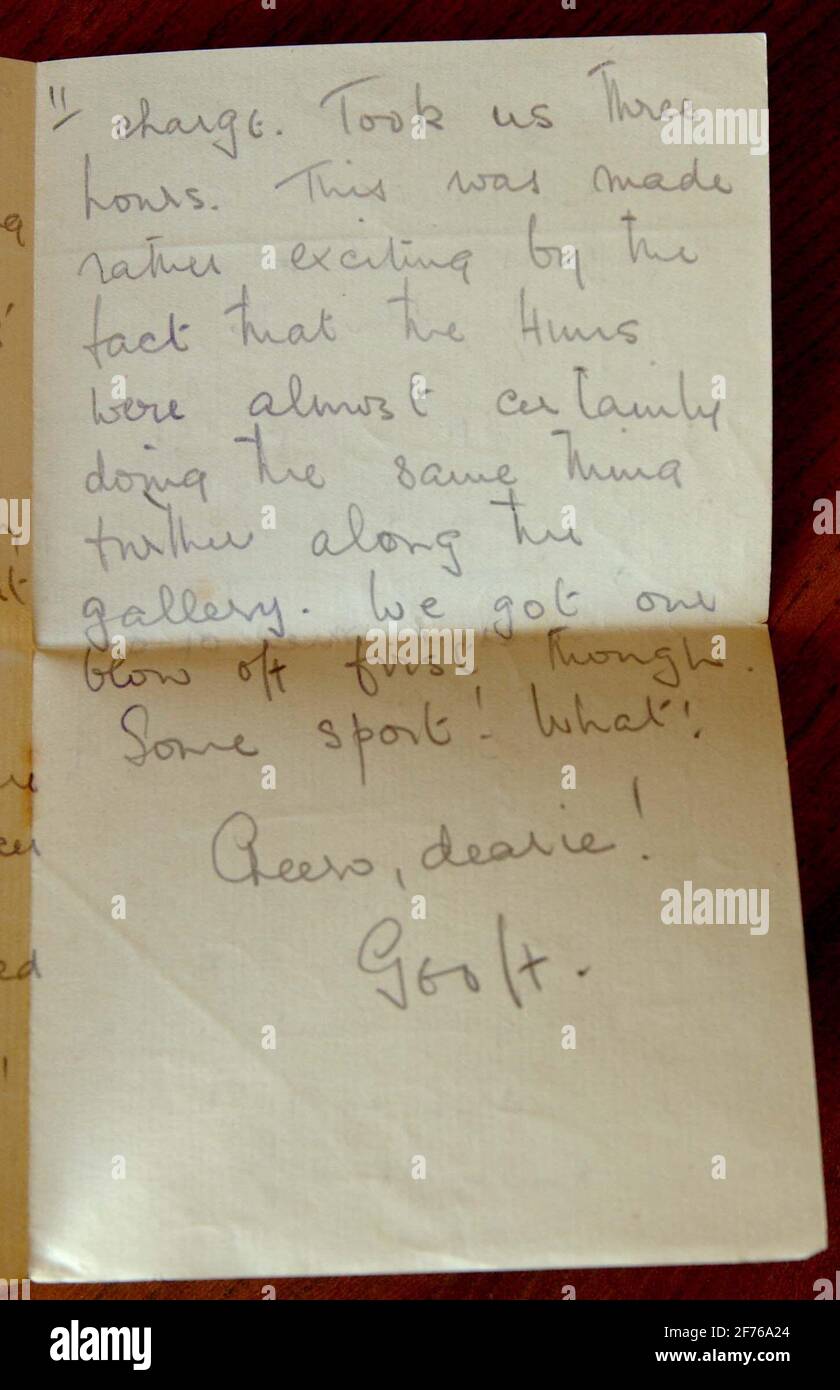 11/
charge. Took us three
hours. This was made
rather exciting by the
fact that the Huns
were almost certainly
doing the same thing
further along the
gallery. We got our
blow off first though.
Some sport! What!
Cheero, dearie!
Geoff.
alamy
alamy
Image ID: 2F76A24
www.alamy.com